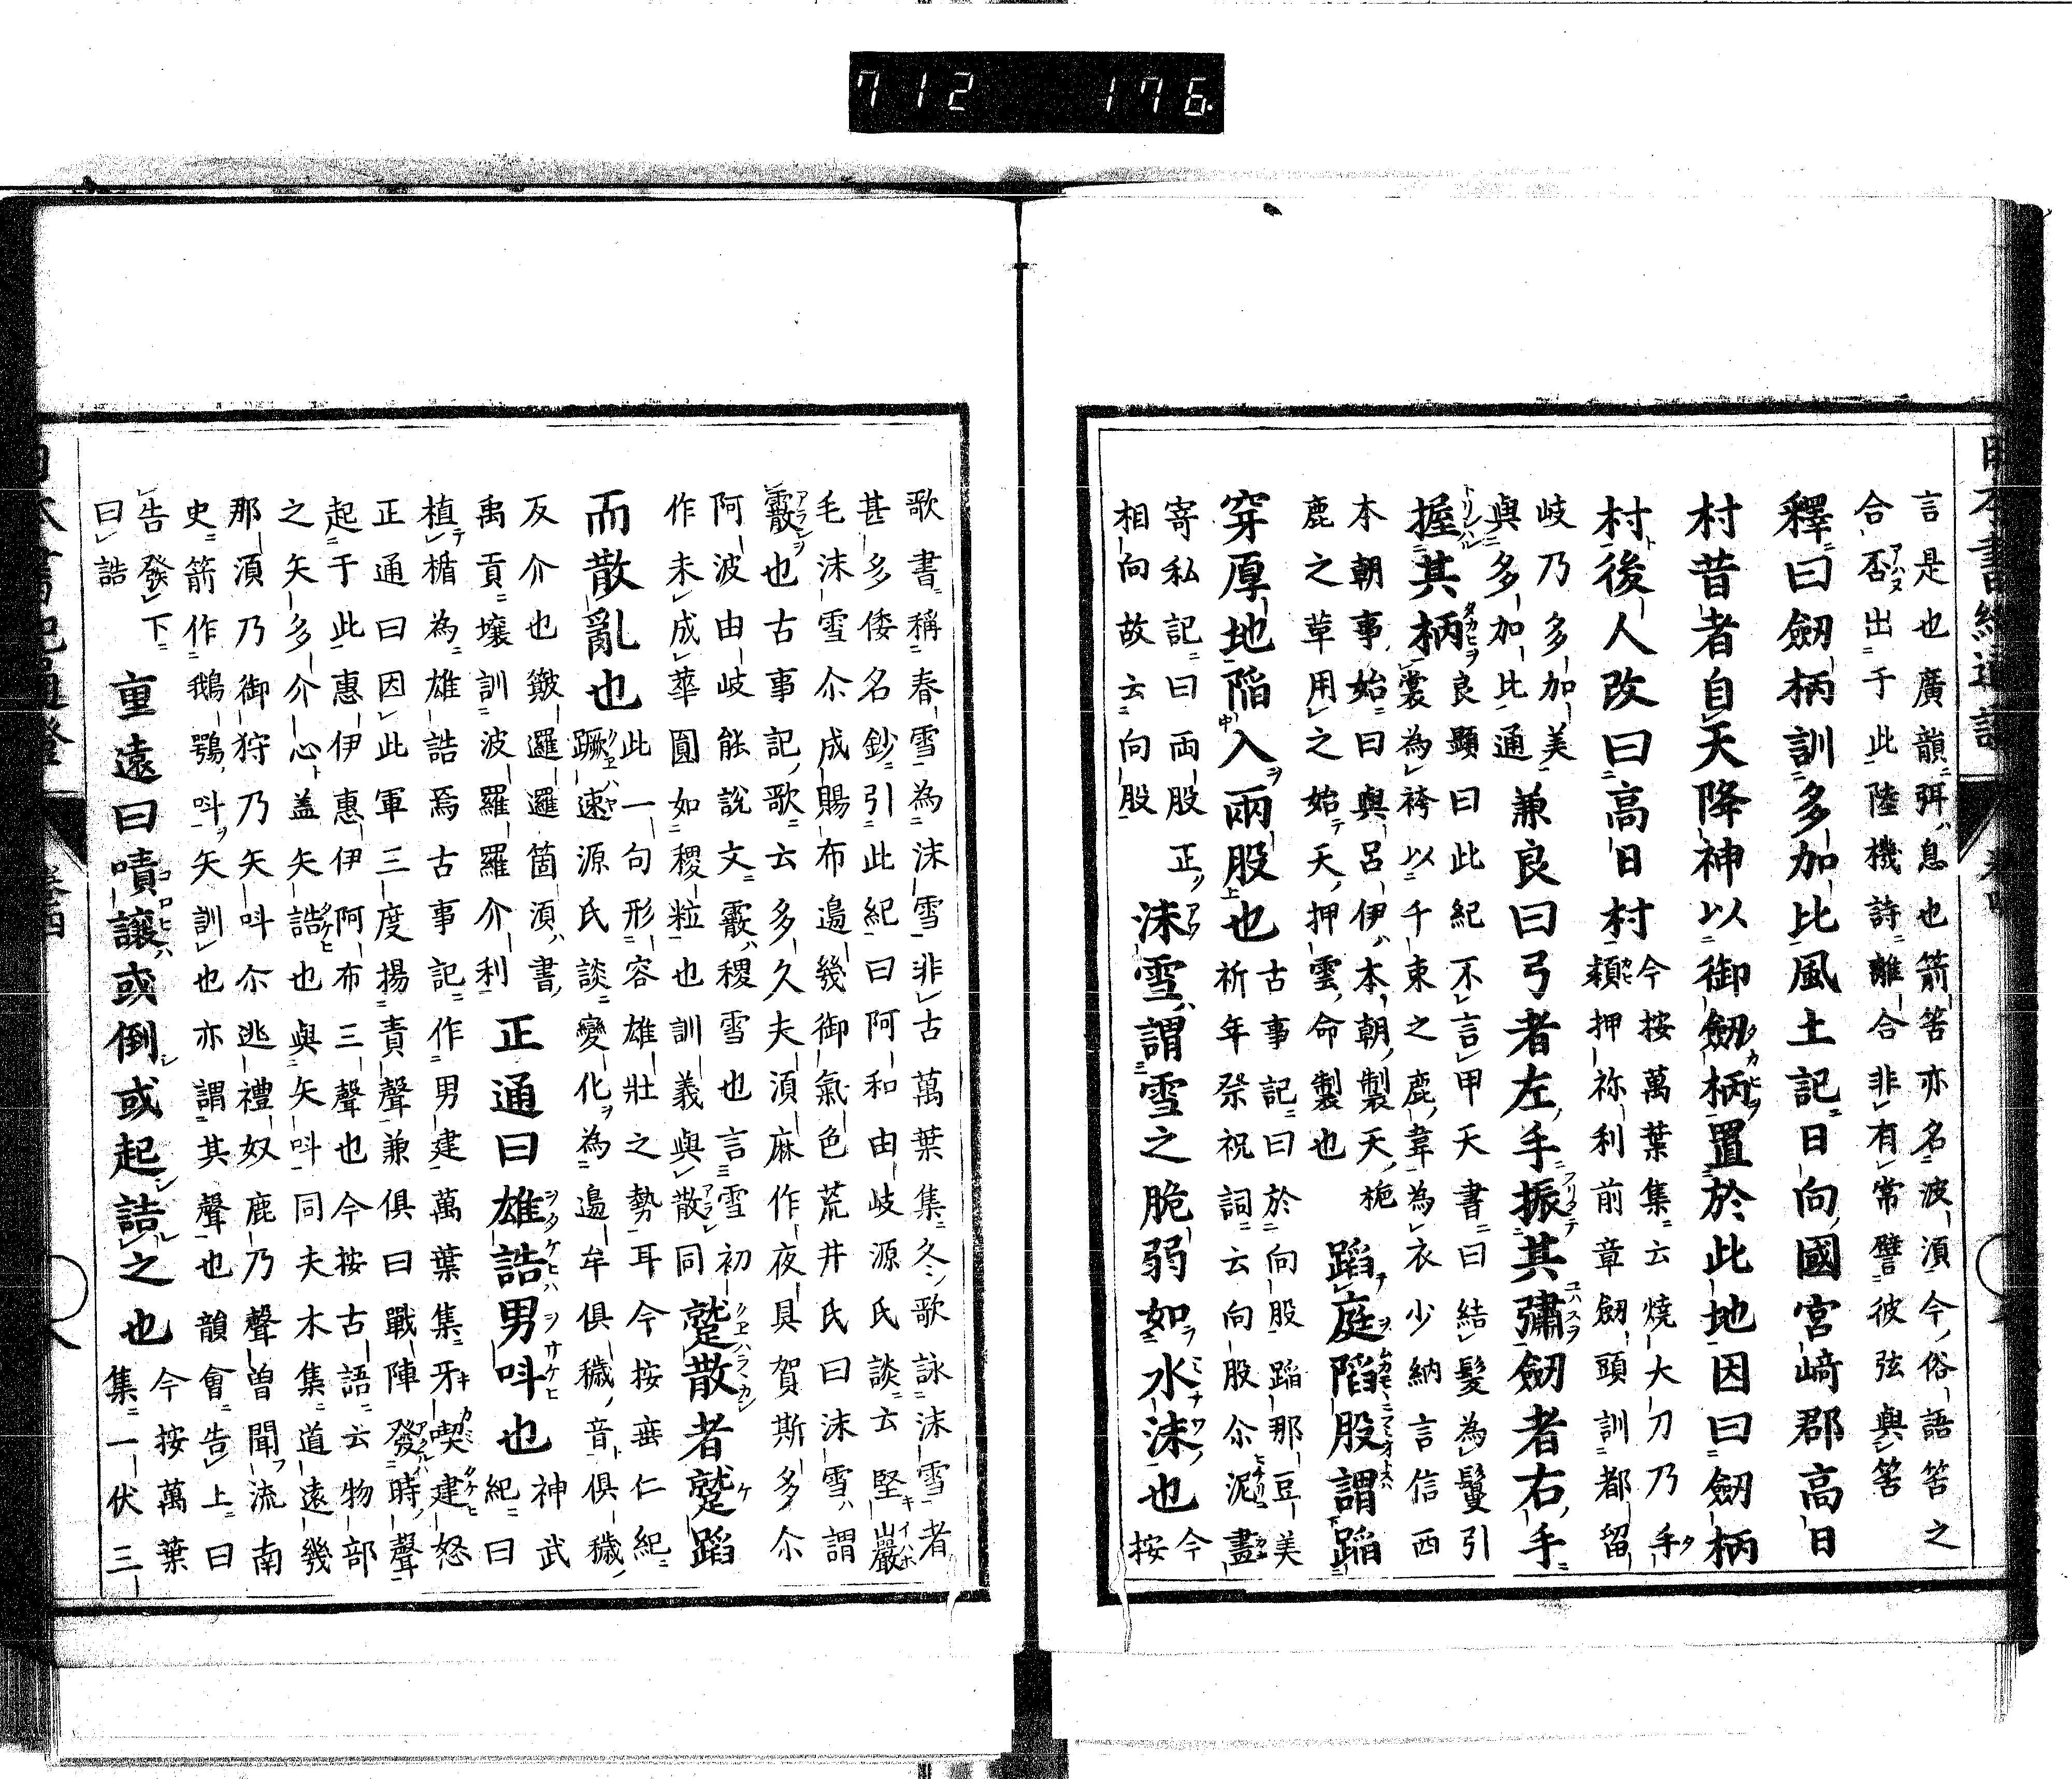 712 176
言是也廣韻弭息也箭筈亦名波湏今俗語筈之
合否出于此陸機詩離合非有常譬彼弦與筈
釋曰劔柄訓多加比風土記日向國宮﨑郡高日
村昔者自天降神以御劔柄置於此地因曰劔柄
村後人改曰高日村
今按萬葉集云燒大刀乃手
頪押祢利前章劔頭訓都留
岐乃多加美
與多加比通
兼良曰弓者左手振其彇劔者右手
握其柄
良顯曰此紀不言甲天書曰結髮為鬘引
裳為袴以千束之鹿韋為衣少納言信西
本朝事始曰與呂伊本朝製天梔
鹿之草用之始天押雲命製也
蹈庭䧟股謂蹈
穿厚地陷入兩股也
古事記曰於向股蹈那豆美
祈年祭祝詞云向股尒泥畫
寄私記曰両股
相向故云向股
正
沬雪謂雪之脆弱如水沬也
今
按
歌書稱春雪為沫雪非古萬葉集冬歌詠沫雪者
甚多倭名鈔引此紀曰阿和由岐源氏談云堅巖
毛沫雪尒成賜布邉幾御氣色荒井氏曰沫雪謂
霰也古事記歌云多久夫湏麻作夜具賀斯多尒
阿波由岐能說文霰稷雪也言雪初
作未成蕐圓如稷粒也訓義與散同
蹵散者蹵蹈
而散亂也
此一句形容雄壯之勢耳今按垂仁紀
蹶速源氏談變化為邉牟俱穢音俱穢
反介也皺邏邏箇湏書
禹貢壤訓波羅羅介利
正通曰雄誥男呌也
神武
紀曰
植楯為雄誥焉古事記作男建萬葉集牙喫建怒
正通曰因此軍三度揚責聲兼俱曰戰陣發時聲
起于此惠伊惠伊阿布三聲也今按古語云物部
之矢多介心盖矢誥也與矢呌同夫木集道遠幾
那湏乃御狩乃矢呌尒逃禮奴鹿乃聲曽聞流南
史箭作鵝鶚呌矢訓也亦謂其聲也韻會告上曰
告發下
曰誥
重遠曰嘖讓或倒或起詰之也
今按萬葉
集一伏三